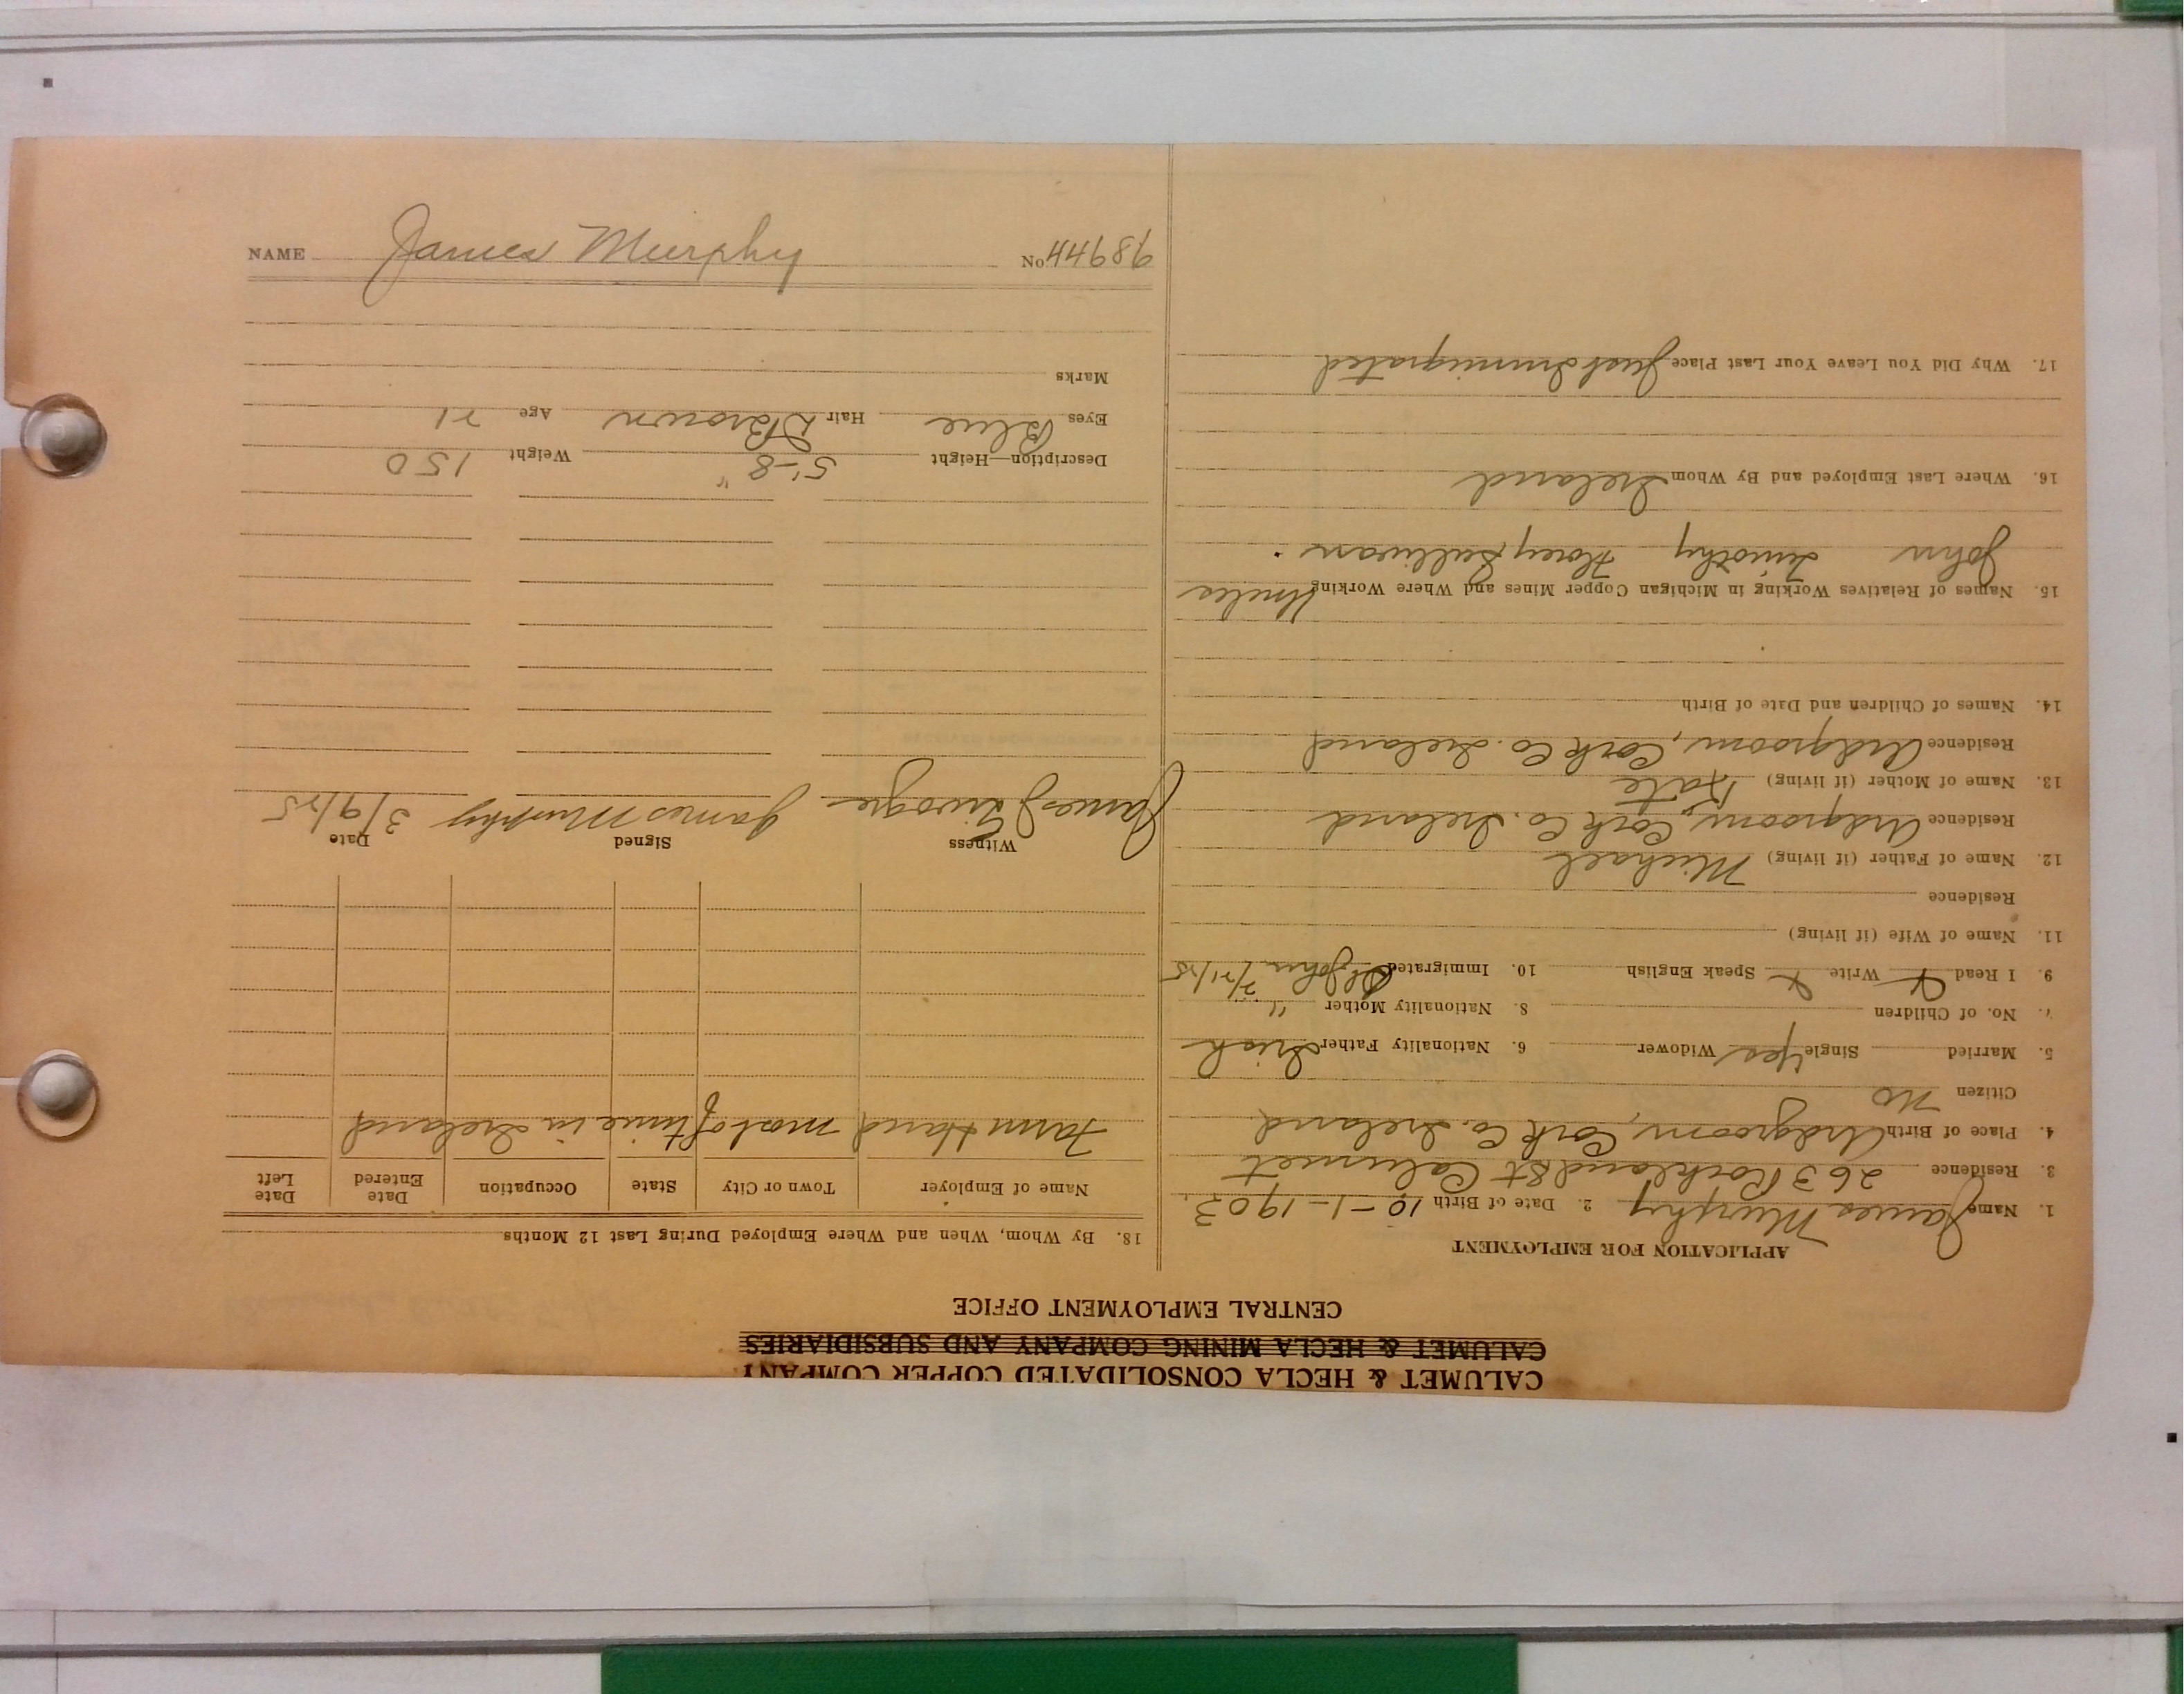 CALUMET & HECLA CONSOLIDATED COPPER COMPANY
CALUMET & HECLA MINING COMPANY AND SUBSIDIARIES
CENTRAL EMPLOYMENT OFFICE
APPLICATION FOR EMPLOYMENT
1. Name James Murphy 2. Date of Birth 10-1-1903.
3. Residence 263 Rockland St Calumet
4. Place of Birth Ardgroom, Cork Co. Ireland
Citizen No
5. Married Single Yes Widower 6. Nationality Father Irish
7. No. of Children 8. Nationality Mother "
9. I Read X Write X Speak English 10. Immigrated St John
11. Name of Wife (if living)
Residence
12. Name of Father (if living) Michael
Residence Ardgroom, Cork Co. Ireland
13. Name of Mother (if living) Kate
Residence Ardgroom, Cork Co. Ireland
14. Names of Children and Date of Birth
15. Names of Relatives Working in Michigan Copper Mines and Where Working Uncles
John Timothy Florey Sullivan.
16. Where Last Employed and By Whom Ireland
17. Why Did You Leave Your Last Place Just Immigrated
18. By Whom, When and Where Employed During Last 12 Months
Name of Employer Town or City State Occupation Date Entered Date Left
Farm Hand most of time in Ireland
Witness Signed Date
James J James Murphy 3/9/25
Description—Height 5'-8" Weight 150
Eyes Blue Hair D Brown Age 21
Marks
NAME James Murphy No 44989